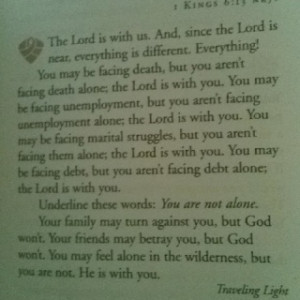 1 KINGS 6:13
The Lord is with us. And, since the Lord is
near, everything is different. Everything!
You may be facing death, but you aren't
facing death alone; the Lord is with you. You may
be facing unemployment, but you aren't facing
unemployment alone; the Lord is with you. You
may be facing marital struggles, but you aren't
facing them alone; the Lord is with you. You may
be facing debt, but you aren't facing debt alone;
the Lord is with you.
Underline these words: You are not alone.
Your family may turn against you, but God
won't. Your friends may betray you, but God
won't. You may feel alone in the wilderness, but
you are not. He is with you.
Traveling Light